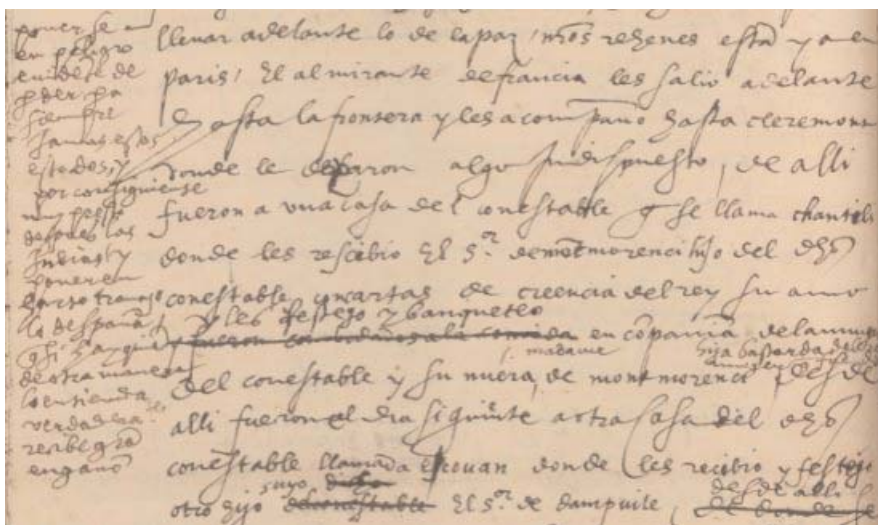 ponerse
en peligro
de
perder pa
siempre
estos
estados, y
por consiguiente
muy presto
despues las
Indias, y
poner en
lo despaña
de otra manera
lo entienda
verdadera
recibe gra
engaño
lleuar adelante lo de la paz, nros rehenes esta ya en
paris, El almirante de francia les salio adelante
hasta la frontera y les acompaño hasta cleremont
donde le dexaron algo Indispuesto, de alli
fueron a vna casa del conestable q se llama chantili
donde les rescibio El sor. de montmorenci hijo del dho
conestable con cartas de creencia del rey su amo
y les festejo y banqueteo
en compania de la muger
madame hija bastarda del
del conestable y su nuera, de montmorenci
alli fueron el dia siguiente a otra casa del dho
conestable llamada escouan donde les recibio y festejo
suyo desde alli
otro hijo El sor. de dampuile,